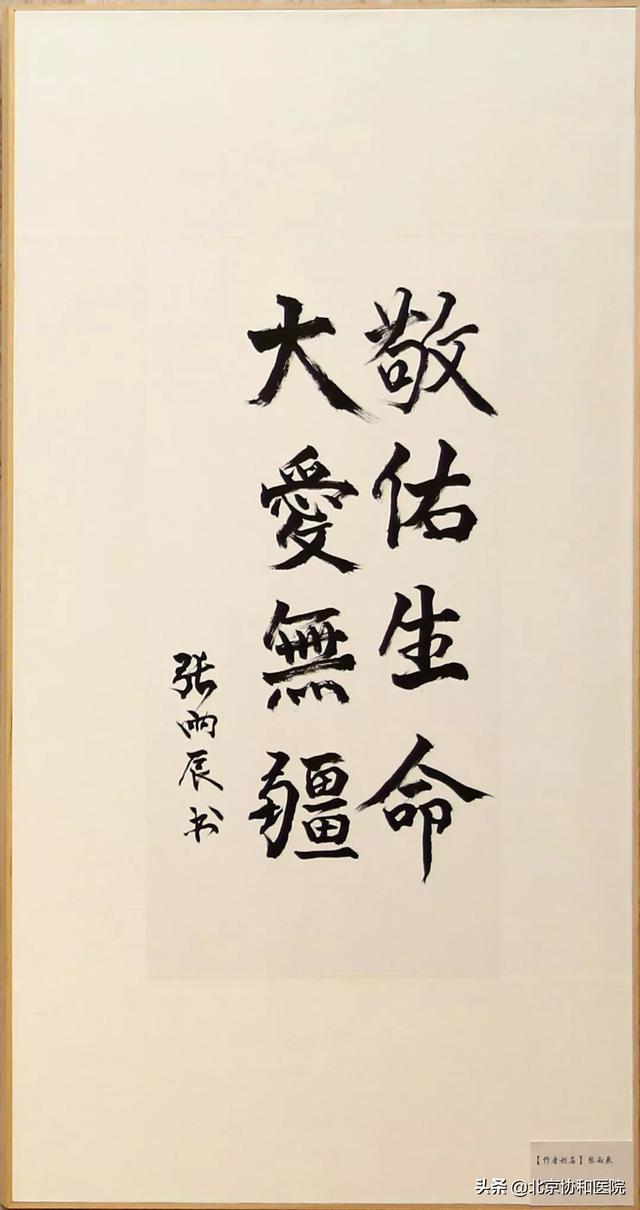 敬佑生命
大愛無疆
张雨辰书
【作者姓名】张雨辰
头条 @北京协和医院